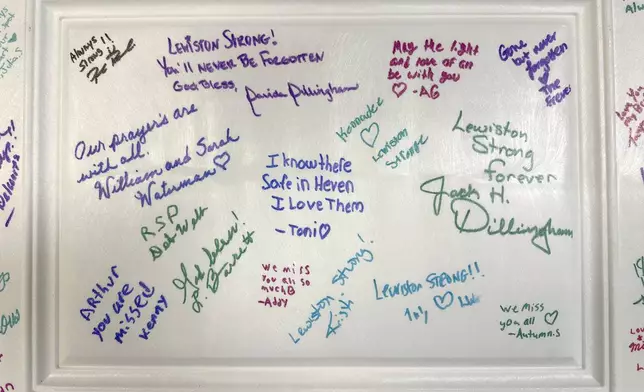 Always
Strong!!
LEWISTON STRONG!
You'll NEVER BE FORGOTTEN
God Bless,
Dillingham
May the light
and love of all
be with you
♡ -AG
Gone
but never
forgotten
The
Our prayer's are
with all.
William and Sarah
Waterman ♡
♡
Lewiston
Strong
Lewiston
Strong
forever
Jack H.
Dillingham
I know there
Safe in Heven
I Love Them
-Toni ♡
RSP
God bless!
L.
ARthur
you are
missed
Kenny
We miss
you all so
much
-Addy
Lewiston Strong!
Trish
LEWISTON STRONG!!
♡
We miss
you all ♡
-Autumn.S